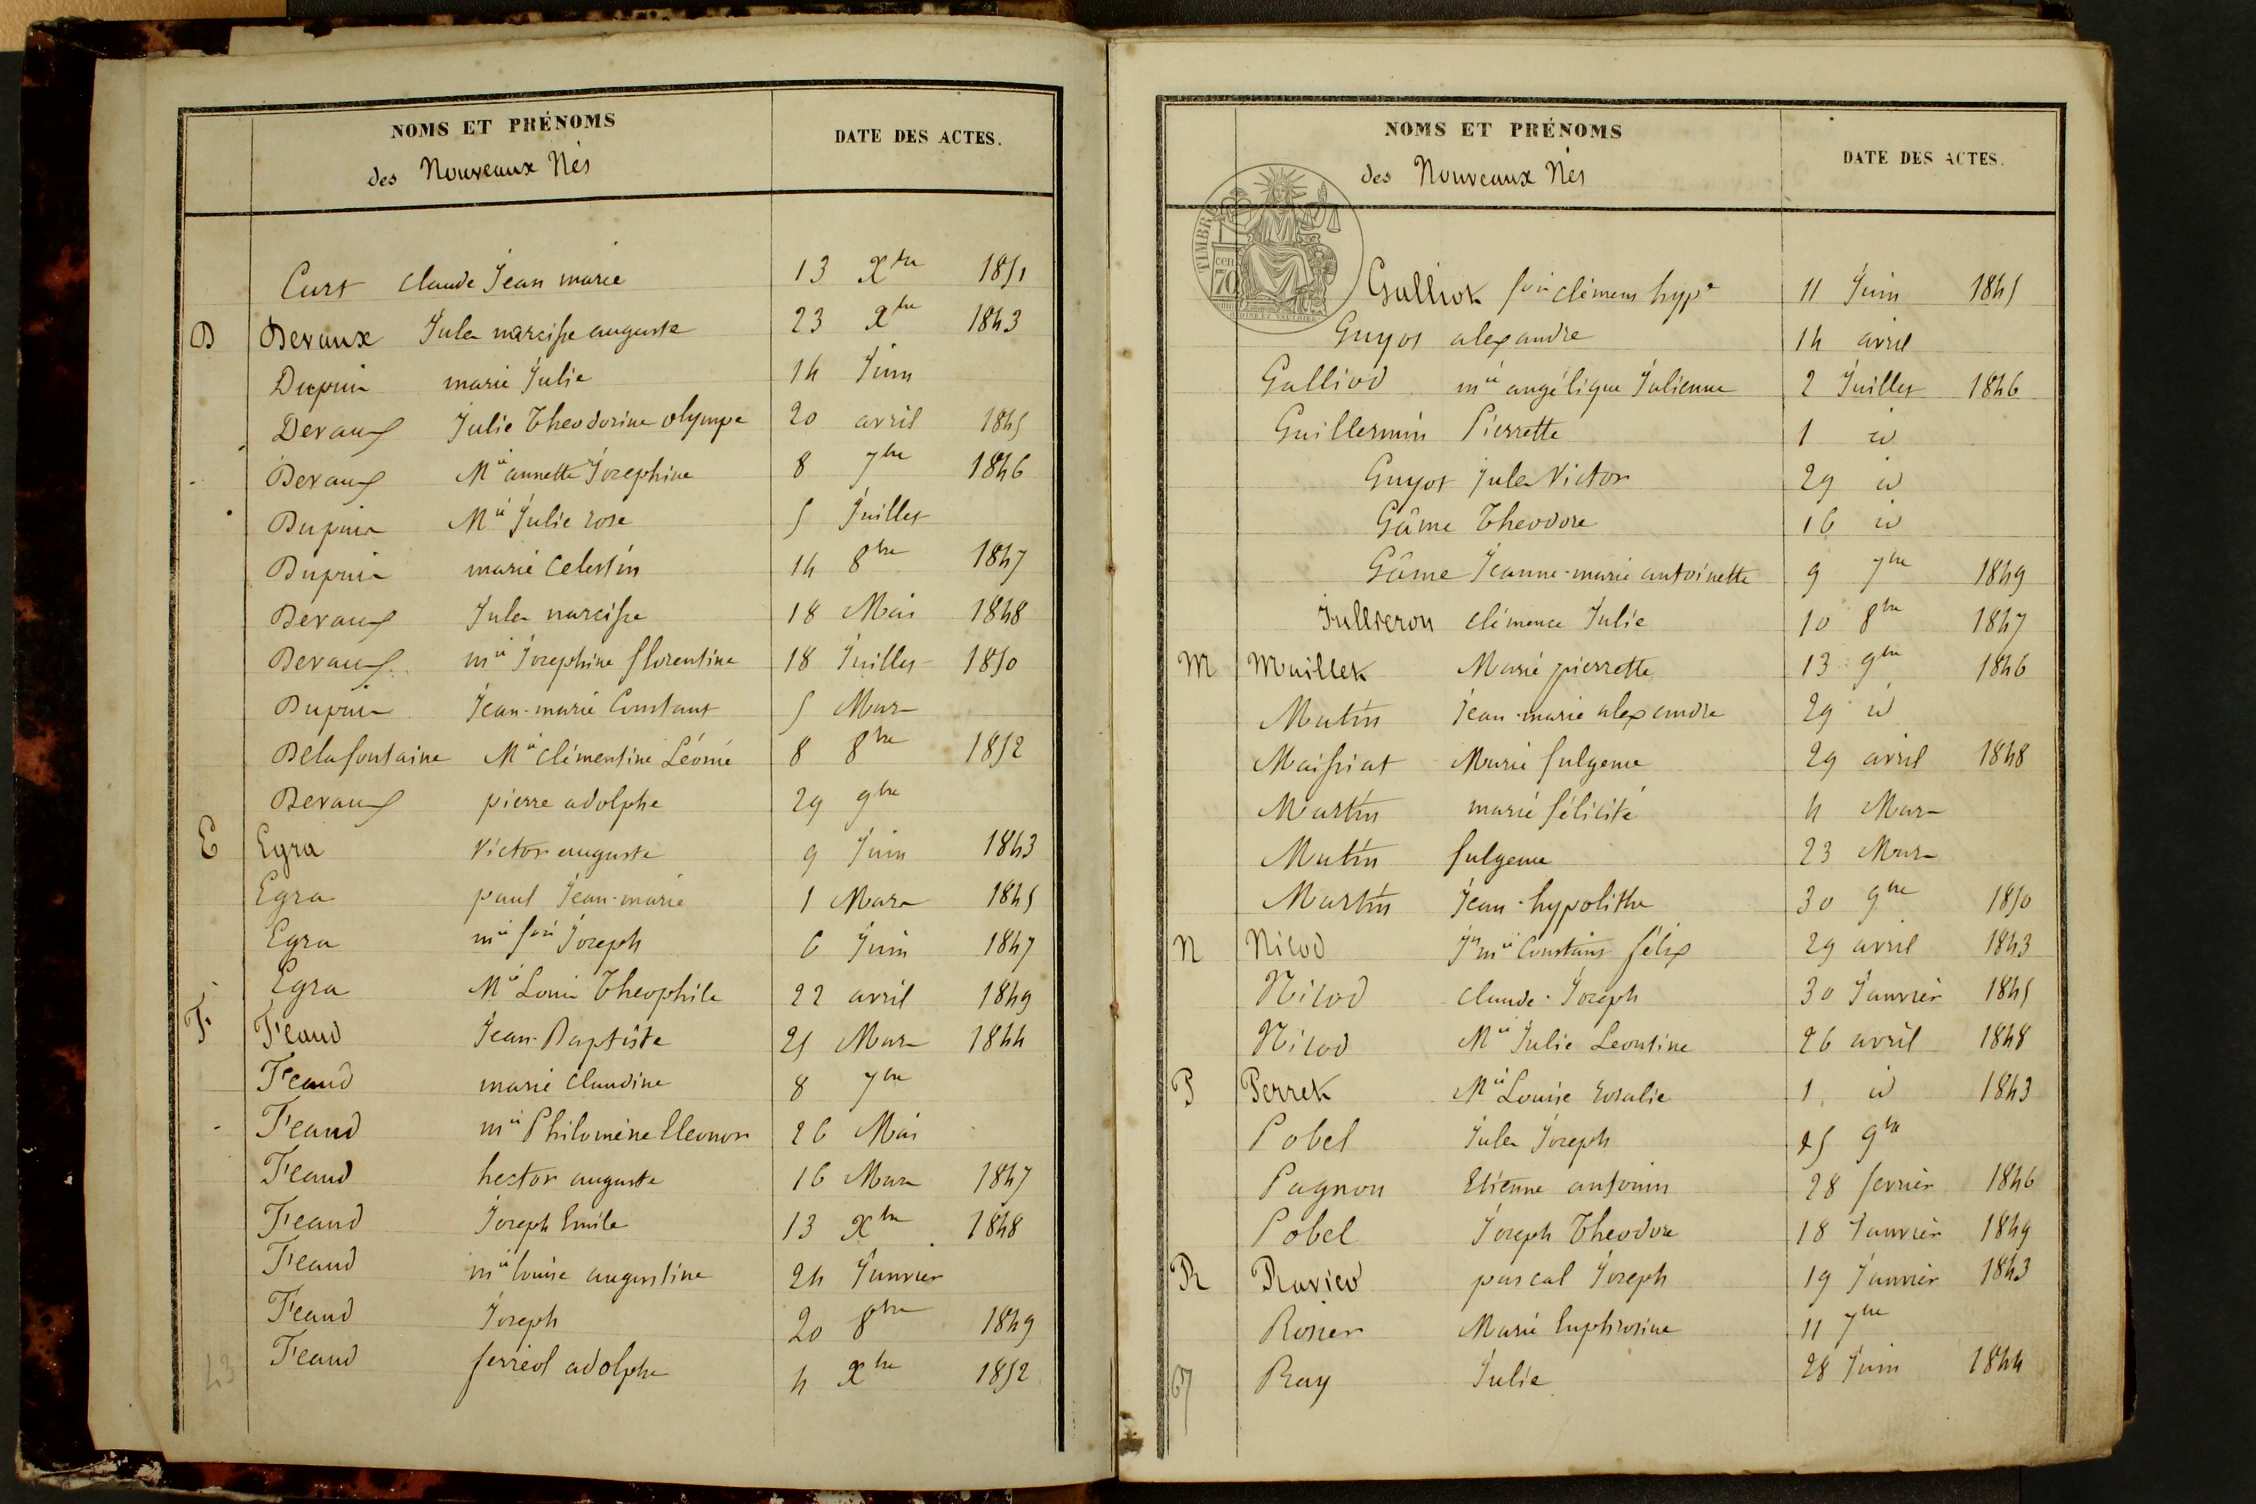 NOMS ET PRÉNOMS
des Nouveaux Nés
DATE DES ACTES.
Curt Claude Jean marie 13 Xbre 1851
D Devaux Jules narcisse auguste 23 Xbre 1843
Dupuis marie Julie 14 Juin
Devaux Julie Theodorine olympe 20 avril 1845
Devaux Mie annette Josephine 8 7bre 1846
Dupuis Mie Julie rose 5 Juillet
Dupuis marie Celestin 14 8bre 1847
Devaux Jules narcisse 18 Mai 1848
Devaux mie Josephine florentine 18 Juillet 1850
Dupuis Jean-marie Constant 5 Mars
Delafontaine Mie Clémentine Léonie 8 8bre 1852
Devaux pierre adolphe 29 9bre
E Egra Victor auguste 9 Juin 1843
Egra paul Jean-marie 1 Mars 1845
Egra mie fois Joseph 6 Juin 1847
Egra Mie Louis Theophile 22 avril 1849
F Feaud Jean-Baptiste 25 Mars 1844
Feaud marie Claudine 8 7bre
Feaud mie Philomène Eleonor 26 Mai
Feaud hector auguste 16 Mars 1847
Feaud Joseph Emile 13 Xbre 1848
Feaud mie louise augustine 24 Janvier
Feaud Joseph 20 8bre 1849
Feaud ferréol adolphe 4 Xbre 1852
NOMS ET PRÉNOMS
des Nouveaux Nés
DATE DES ACTES.
TIMBRE
70 cen
Galliot fois clémens hyp 11 Juin 1845
Guyot alexandre 14 avril
Galliod mie angélique Julienne 2 Juillet 1846
Guillermin Pierrette 1 id
Guyot Jules Victor 29 id
Gâme Theodore 16 id
Gâme Jeanne-marie antoinette 9 7bre 1849
Jullieron Clémence Julie 10 8bre 1847
M Maillet Marie pierrette 13 9bre 1846
Mutin Jean-marie alexandre 29 id
Maissiat Marie fulgence 29 avril 1848
Martin marie félicité 4 Mars
Mutin fulgence 23 Mars
Martin Jean-hypolithe 30 9bre 1850
N Nicod Jn mie Constant félix 29 avril 1843
Nicod Claude-Joseph 30 Janvier 1845
Nicod Mie Julie Leontine 26 avril 1848
P Perret Mie Louise rosalie 1 id 1843
Pobel Jules Joseph 25 9bre
Pagnon Etienne antonin 28 fevrier 1846
Pobel Joseph Theodore 18 Janvier 1849
R Ravied pascal Joseph 19 Janvier 1843
Rosier Marie Euphrosine 11 7bre
Ray Julie 28 Juin 1844